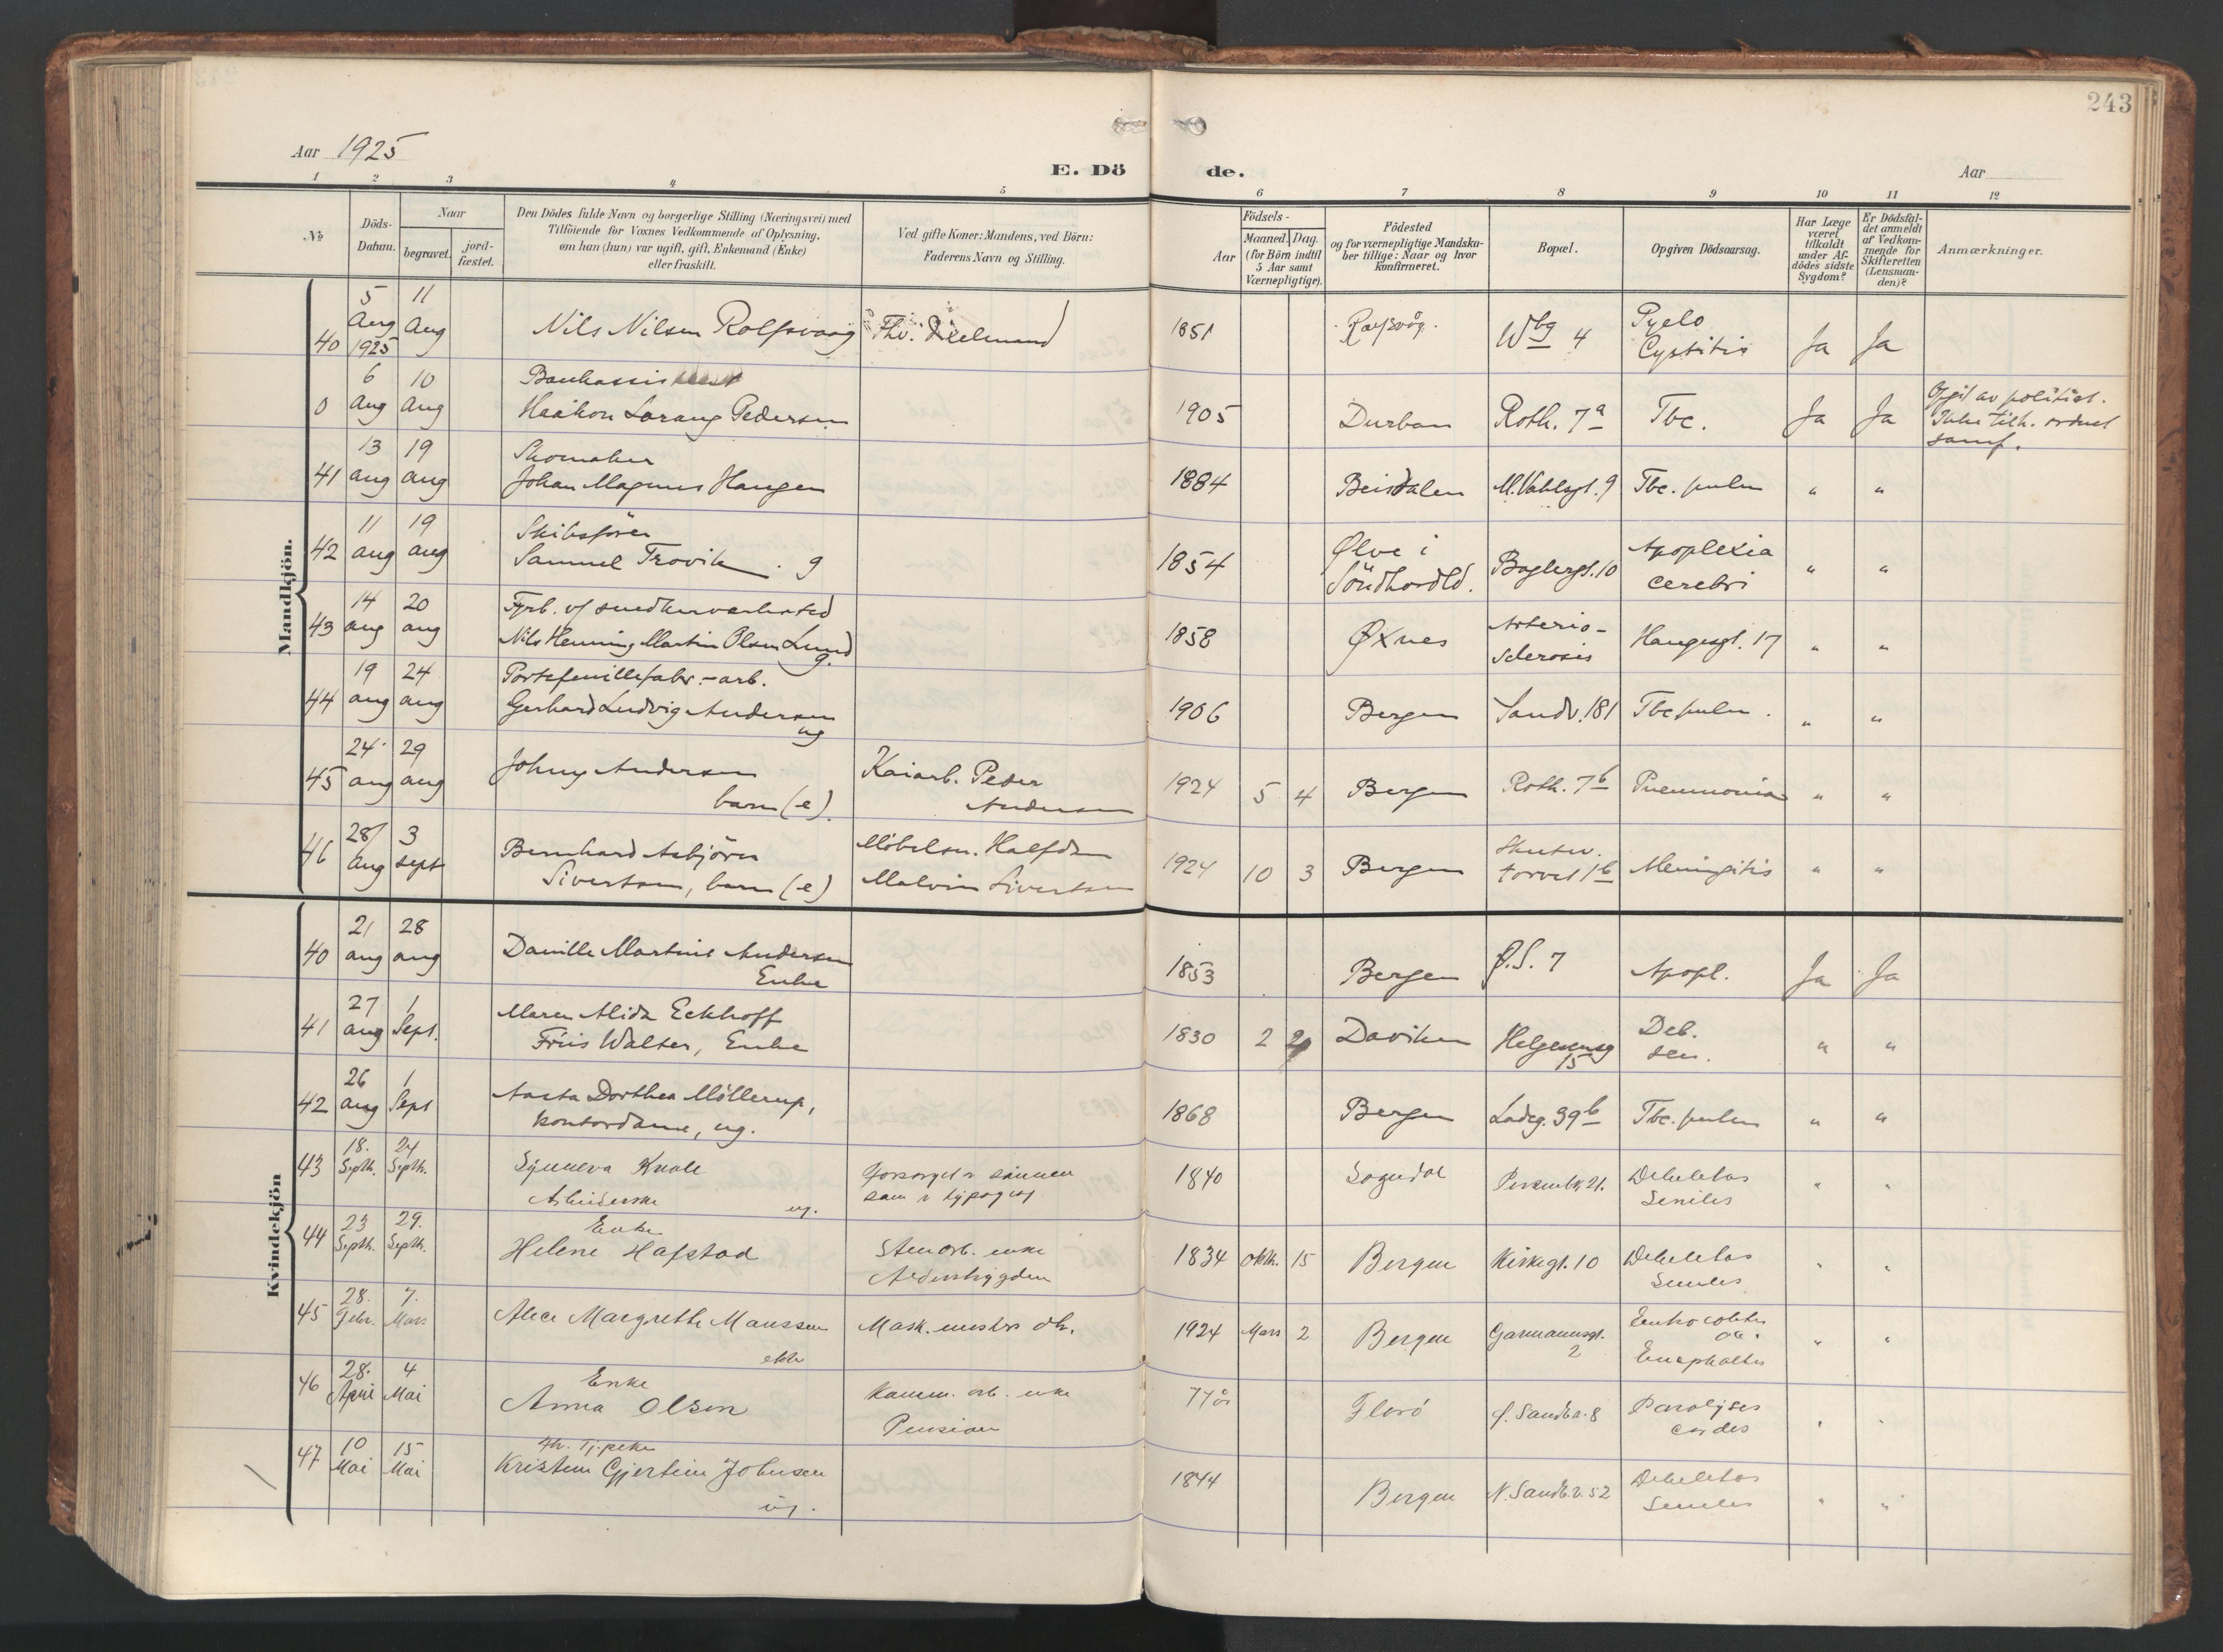 243
Aar 1925
E. Dö de.
Aar
1 2 3 4 5 6 7 8 9 10 11 12
No
Döds-Datum.
Naar
begravet. jordfæstet.
Den Dödes fulde Navn og borgerlige Stilling (Næringsvei) med
Tilföiende for Voxnes Vedkommende af Oplysning,
om han (hun) var ugift, gift, Enkemand (Enke)
eller fraskilt.
Ved gifte Koner: Mandens, ved Börn:
Faderens Navn og Stilling.
Aar
Födsels-
Maaned. Dag.
(for Börn indtil
5 Aar samt
Værnepligtige).
Födested
og for værnepligtige Mandskaber tillige: Naar og hvor
konfirmeret.
Bopæl.
Opgiven Dödsaarsag.
Har Læge
været
tilkaldt
under Afdödes sidste
Sygdom?
Er Dödsfaldet anmeldt
af Vedkommende for
Skifteretten
(Lensmanden)?
Anmærkninger.
Mandkjön.
40 5 Aug 1925 11 Aug Nils Nilsen Rolfsvaag 1851 Wbg 4 Pyelo Cystitis Ja Ja
0 6 Aug 10 Aug Haakon Lorang Pedersen 1905 Durban Roth. 7a Tbc. Ja Ja
41 13 aug 19 aug Skomaker
Johan Magnus Haugen 1884 Beisdalen M. Vahlsgt. 9 Tbc. pulm " "
42 11 aug 19 aug Skibsförer
Samuel Trovik. g 1854 Ølve i Söndhordld. Baglergt. 10 Apoplexia cerebri " "
43 14 aug 20 aug
Nils Henning Martin Olsen Lund g. 1858 Øxnes Arteriosclerosis Haugesgt. 17 " "
44 19 aug 24 aug Portefeuillefabr.-arb.
Gerhard Ludvig Andersen ug 1906 Bergen Sandv. 181 Tbc pulm. " "
45 24 aug 29 aug Johny Andersen
barn (e). Kaiarb. Peder Andersen 1924 5 4 Bergen Roth. 7b Pneumonia " "
46 28 Aug 3 sept Bernhard Asbjörn
Sivertsen, barn (e) Möbelsn. Halfdan Malvin Sivertsen 1924 10 3 Bergen torvet 1b Meningitis " "
Kvindekjön
40 21 aug 28 aug Martine Andersen
Enke 1853 Bergen Ø.S. 7 Apopl. Ja Ja
41 27 aug 1 Sept. Maren Alida Eckhoff
Friis Walter, Enke 1830 2 Daviken Helgesensg 15 Deb. sen. " "
42 26 aug 1 Sept Aasta Dorthea Möllerup,
kontordame, ug. 1868 Bergen Ladeg. 39b Tbc. pulm " "
43 18. Septb. 24 Septb. Synneva Kvale
Arbeiderske ug. forsörget av sönnen som er typograf 1840 Sogndal 21. Debilitas Seniles " "
44 23 Septb. 29. Septb. Enke
Helene Hafstad Stenarb. enke Alderstrygden 1834 Oktb. 15 Bergen Kirkegt. 10 Debilitas Seniles " "
45 28. Febr. 7. Mars Alice Margrethe Monssen
ekte Mask. 1924 Mars 2 Bergen Garmannsgt. 2 " "
46 28. April 4 Mai Enke
Anna Olsen Komm. arb. enke Pension 77 år Florö 8 Paralyses cordes " "
47 10 Mai 15 Mai
Kristine Gjertine Johnsen
ug. 1844 Bergen N. Sandv. v. 52 Debilitas Seniles " "